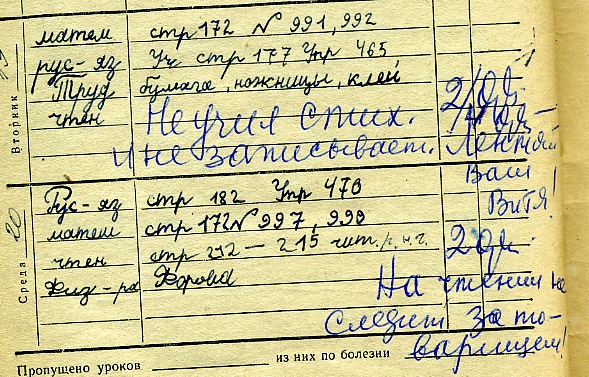 Вторник
матем стр 172 № 991, 992
рус-яз Уч стр 177 Упр 465
Труд бумага, ножницы, клей
чтен Не учил стих.
И не записывает. Лентяй
Ваш
Витя!
Среда 20
Рус-яз стр 182 Упр 470
матем стр 172 № 997, 998
чтен стр 212 – 215 чит.
Физ-ра Форма
На чтении не
следит за то-
варищем!
Пропущено уроков из них по болезни